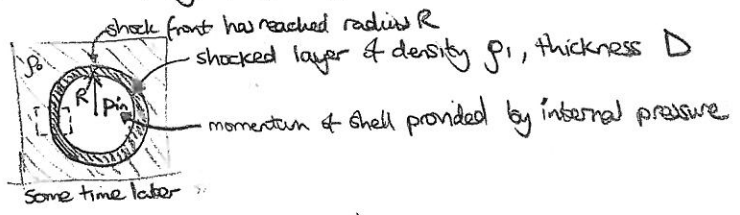 shock front has reached radius R
shocked layer of density ρ₁, thickness D
ρ₀
R
Pin
momentum of shell provided by internal pressure
some time later